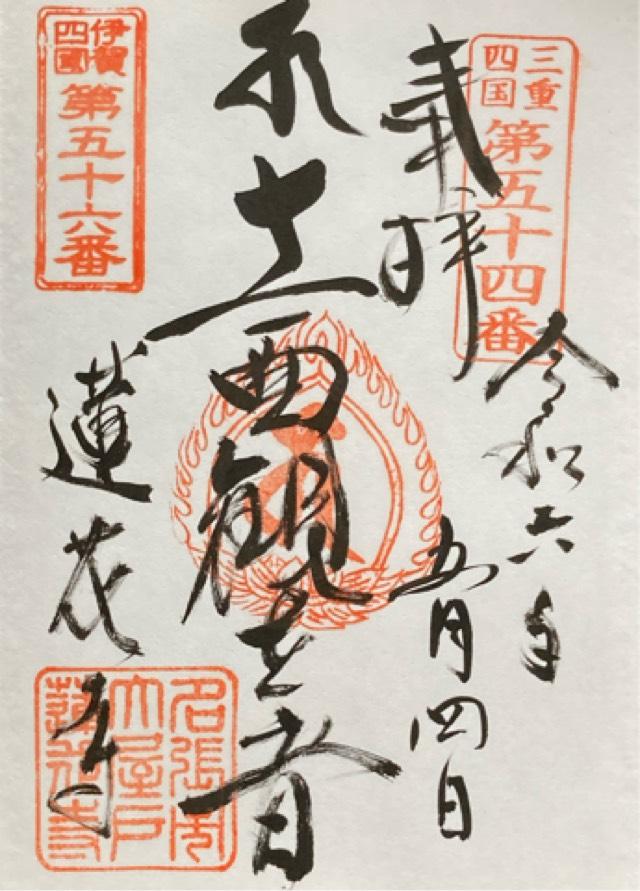 三重
四国
第五十四番
奉拝
令和六年
五月四日
十一面観世音
伊賀
四國
第五十六番
蓮花寺
名張市
大屋戸
蓮花寺